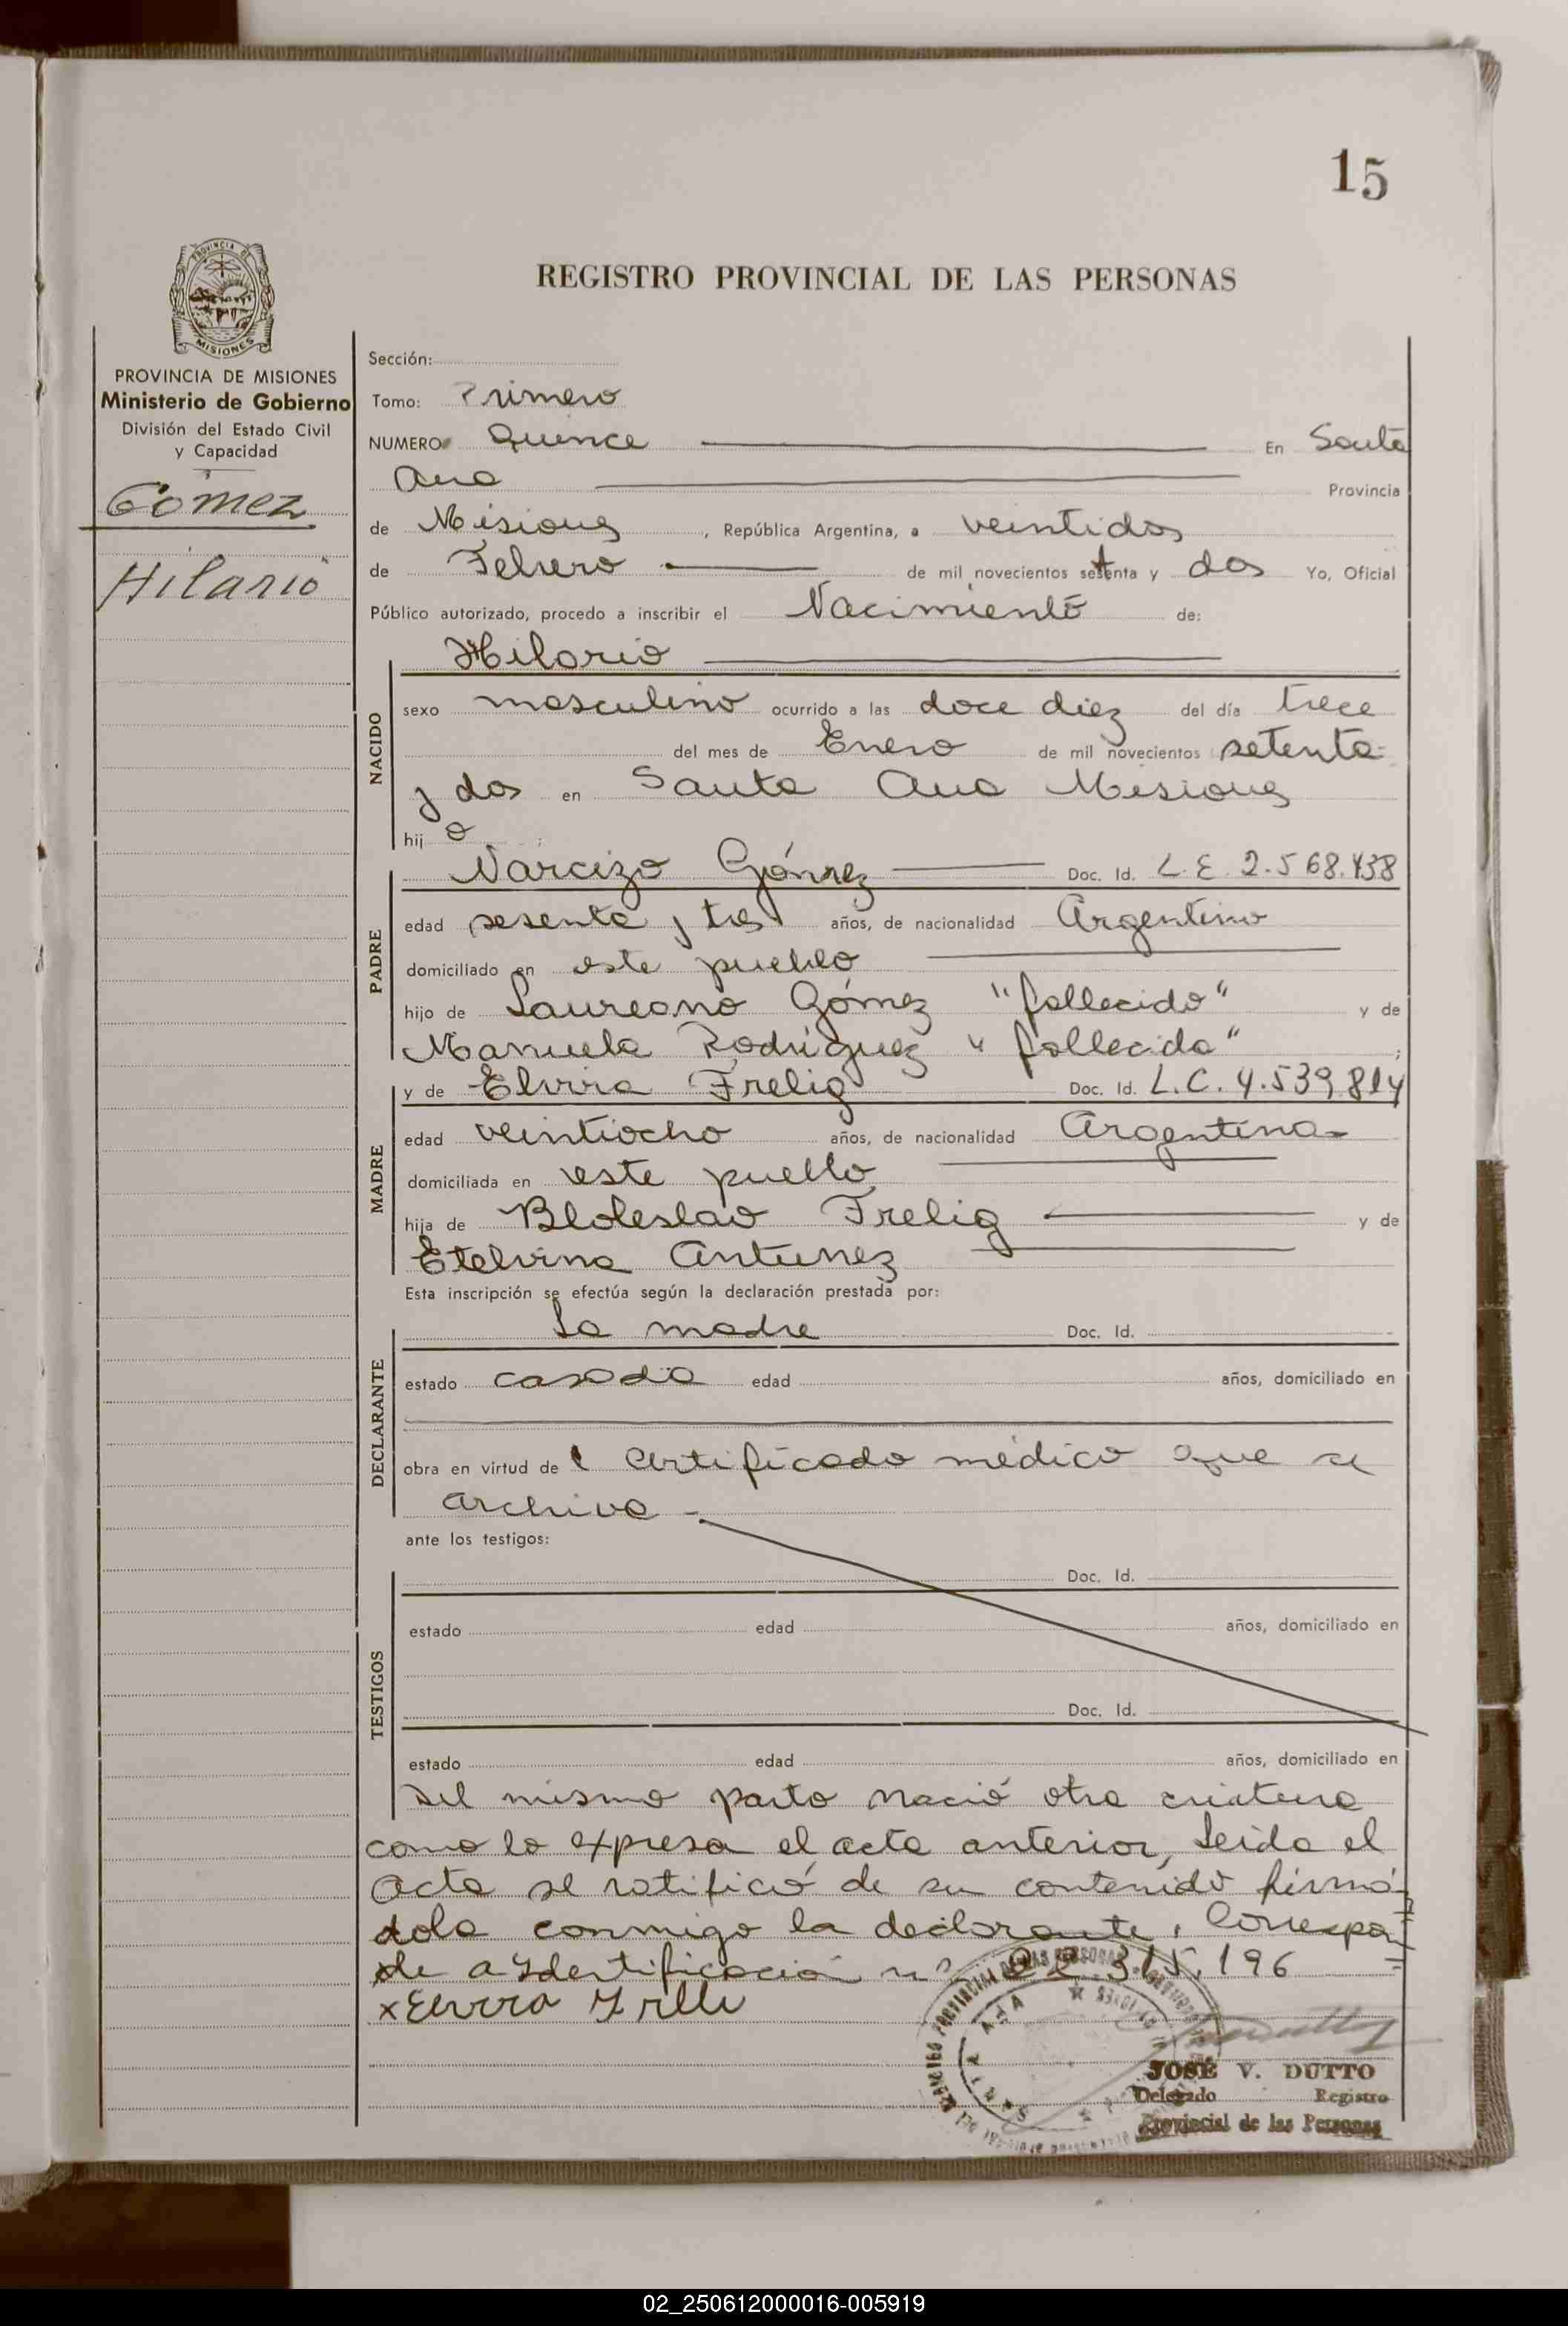 15
REGISTRO PROVINCIAL DE LAS PERSONAS
PROVINCIA DE
MISIONES
PROVINCIA DE MISIONES
Ministerio de Gobierno
División del Estado Civil
y Capacidad
Gómez
Hilario
Sección:
Tomo: Primero
NUMERO Quince En Santa
Ana Provincia
de Misiones, República Argentina, a veintidos
de Febrero de mil novecientos setenta y dos Yo, Oficial
Público autorizado, procedo a inscribir el Nacimiento de:
Hilario
NACIDO
sexo masculino ocurrido a las doce diez del día trece
del mes de Enero de mil novecientos setenta
y dos en Santa Ana Misiones
hijo
PADRE
Narcizo Gómez Doc. Id. L.E. 2.568.438
edad sesenta y tres años, de nacionalidad Argentino
domiciliado en este pueblo
hijo de Laureano Gómez "fallecido" y de
Manuela Rodriguez "fallecida" ;
MADRE
y de Elvira Frelig Doc. Id. L.C. 4.539.814
edad veintiocho años, de nacionalidad Argentina
domiciliada en este pueblo
hija de Bloleslao Frelig y de
Etelvina Antunez
Esta inscripción se efectúa según la declaración prestada por:
DECLARANTE
La madre Doc. Id.
estado casada edad años, domiciliado en
obra en virtud del certificado médico que se
archiva
ante los testigos:
TESTIGOS
Doc. Id.
estado edad años, domiciliado en
Doc. Id.
estado edad años, domiciliado en
Del mismo parto nació otra criatura
como lo expresa el acta anterior, Leida el
Acta se ratificó de su contenido firmán
dola conmigo la declarante. Correspon
de a Identificación nº 22.315.196
x Elvira
SANTA ANA
JOSÉ V. DUTTO
Delegado Registro
Provincial de las Personas
02_250612000016-005919